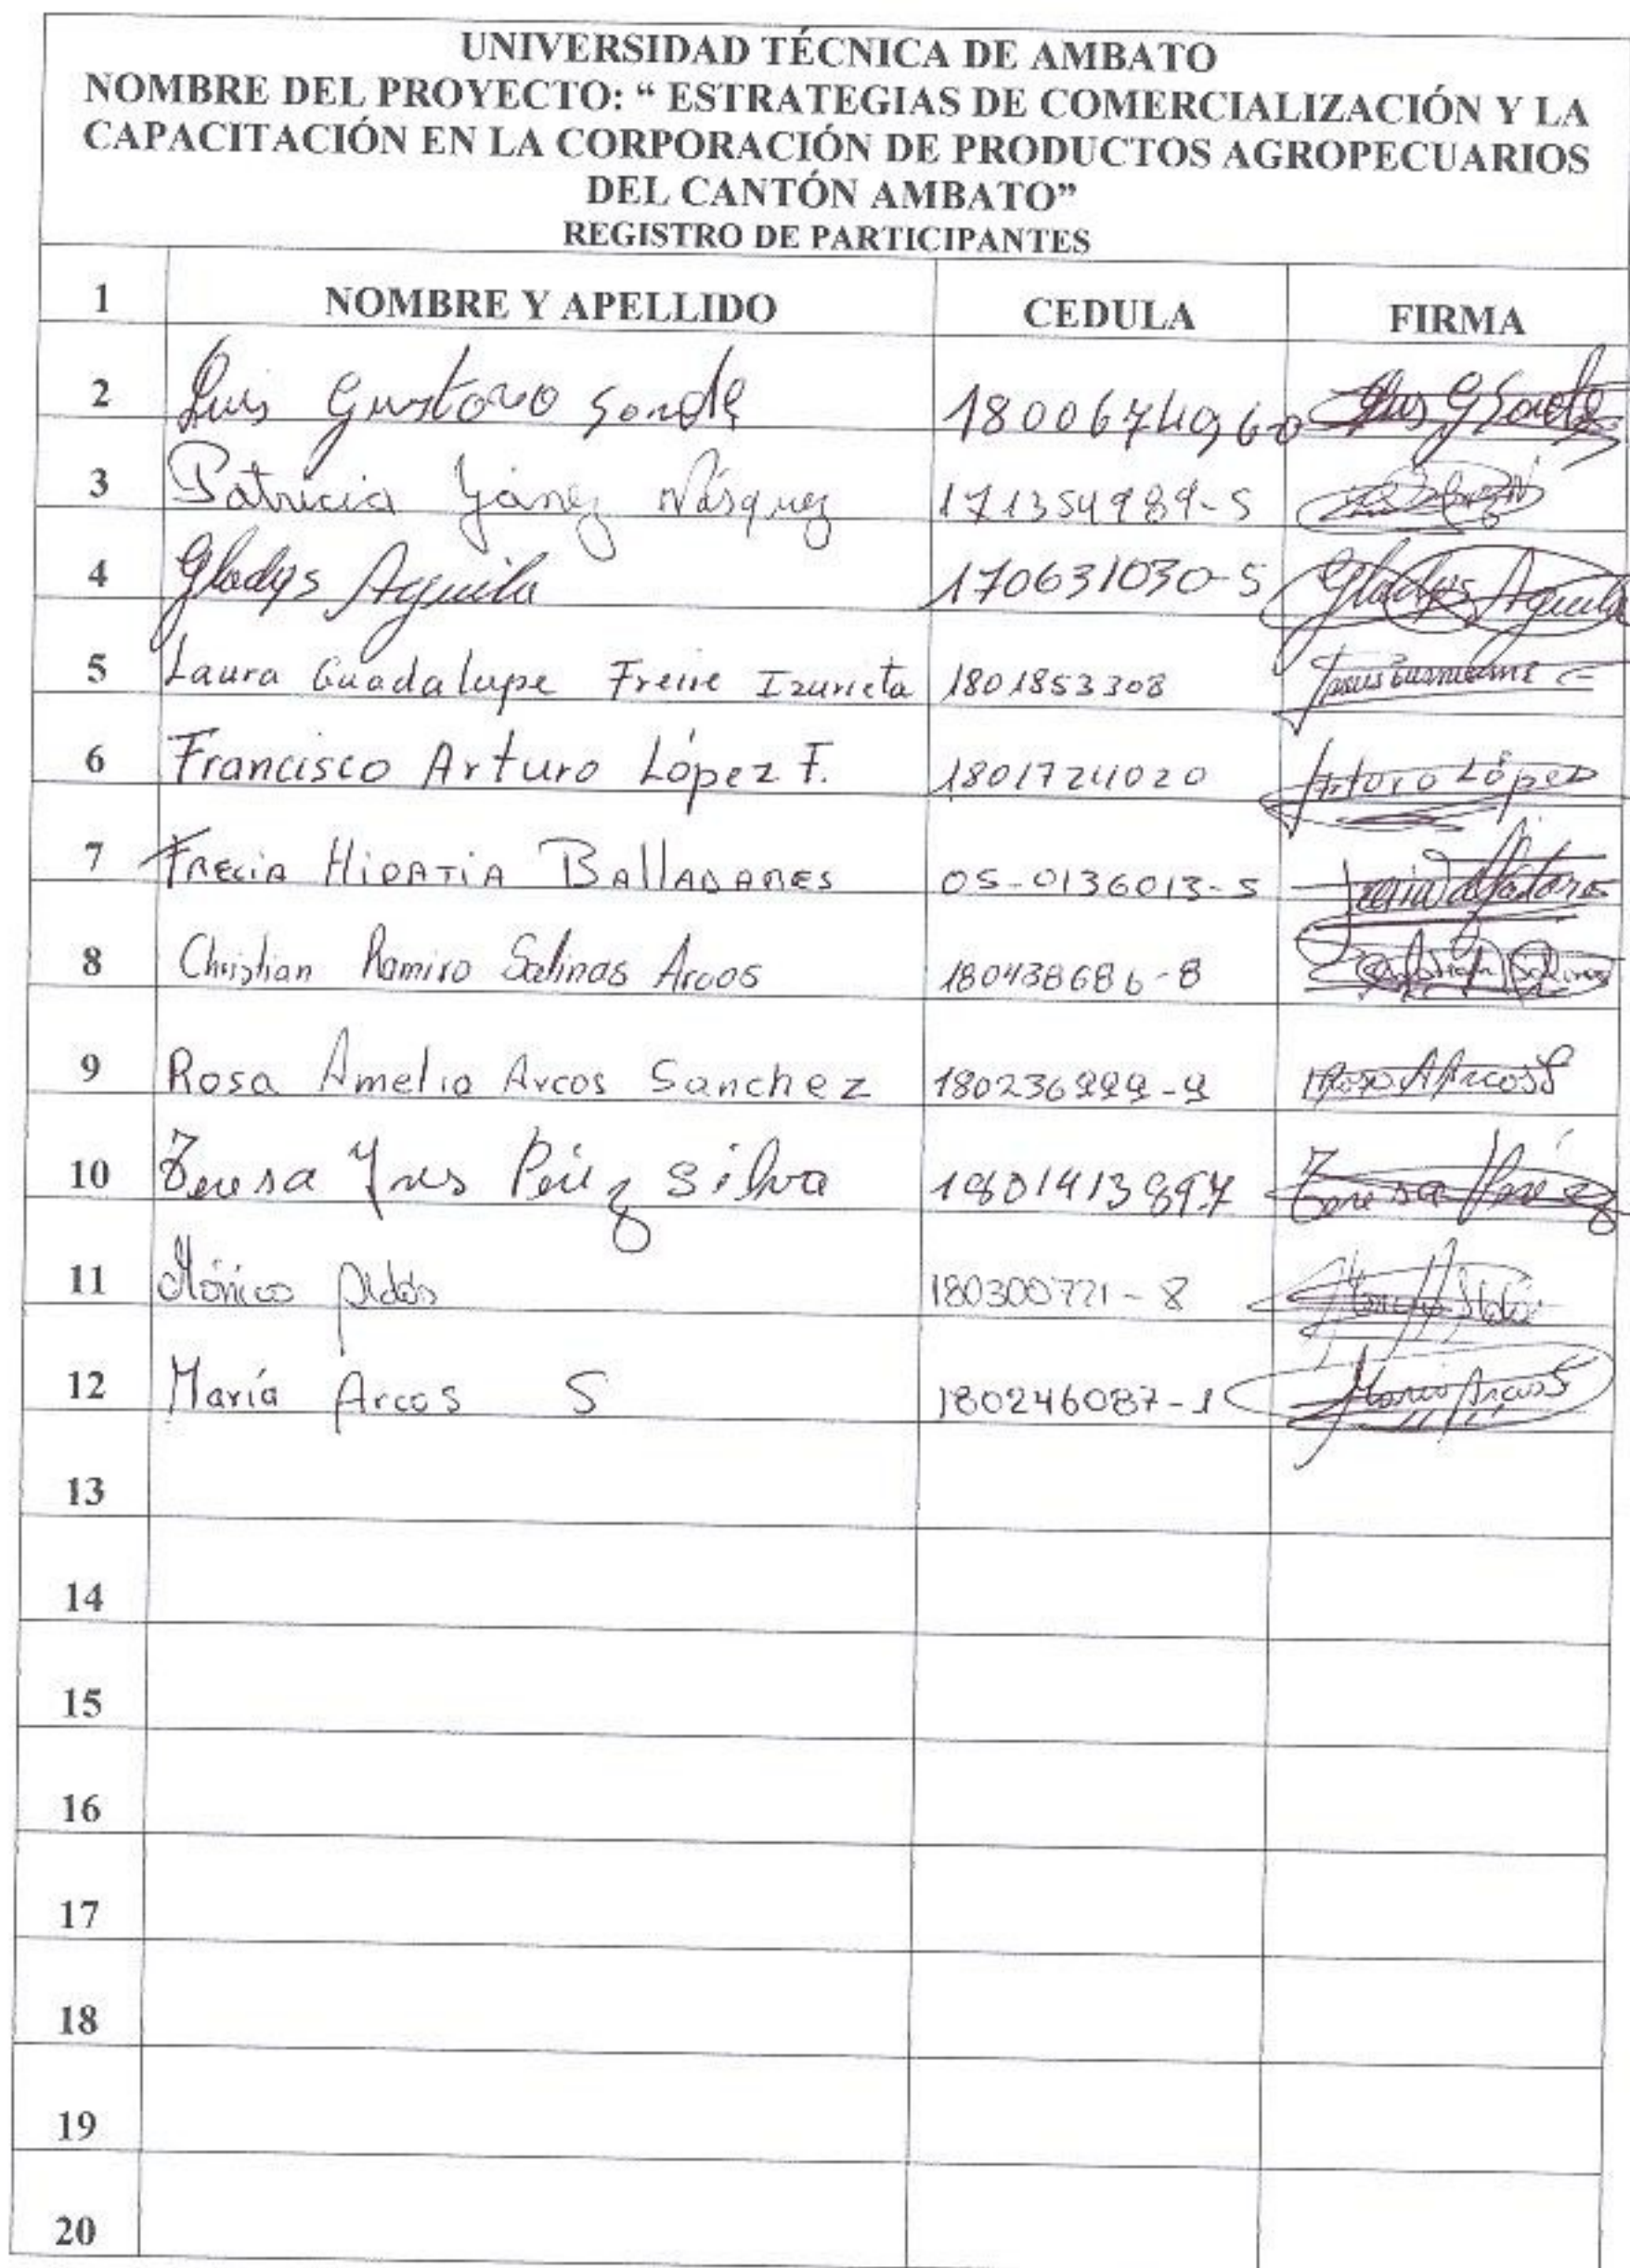 UNIVERSIDAD TÉCNICA DE AMBATO
NOMBRE DEL PROYECTO: “ ESTRATEGIAS DE COMERCIALIZACIÓN Y LA
CAPACITACIÓN EN LA CORPORACIÓN DE PRODUCTOS AGROPECUARIOS
DEL CANTÓN AMBATO”
REGISTRO DE PARTICIPANTES
1 NOMBRE Y APELLIDO CEDULA FIRMA
2 Luis Gustavo 1800674960
3 Patricia Yánez Vásquez 171354989-5
4 Gladys Aguila 170631030-5 Gladys Aguila
5 Laura Guadalupe Freire Izurieta 1801853308
6 Francisco Arturo López F. 1801724020 Arturo López
7 Frecia Hipatia Balladares 05-0136013-5
8 Christian Ramiro Salinas Arcos 180438686-8
9 Rosa Amelia Arcos Sanchez 180236999-9 Rosa A Arcos S
10 Teresa Ines Pérez Silva 1801413897 Teresa Pérez
11 Mónica 180300721-8
12 María Arcos S 180246087-1 Maria Arcos S
13
14
15
16
17
18
19
20